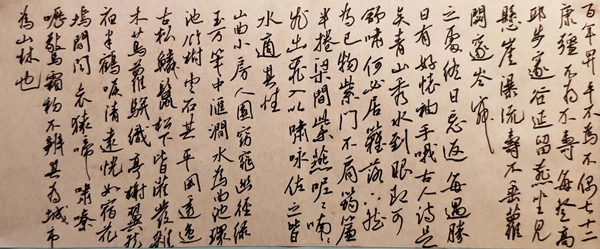 百年昇平不為不偶七十二
康彊不為不壽每登高
邱步邃谷延留燕坐見
懸崖瀑流壽木垂蘿
閟邃岑寂
之處終日忘返每過勝
日有好懷袖手哦古人詩足
矣青山秀水到眼即可
舒嘯何必居籬落
為己物柴門不扃筠簾
半捲梁間紫燕呢呢喃喃
飛出飛入以嘯咏佐之皆
適其性
山曲小房入園窈窕幽徑綠
玉万竿中匯澗水為曲池環
池竹樹雲石其平岡逶迤
古松鱗鬣松下皆灌叢雜
木蔦蘿駢織亭榭翼然
夜半鶴唳清遠恍如宿花
塢間聞哀猿啼嘯嘹
嚦驚霜初不辨其為城市
為山林也